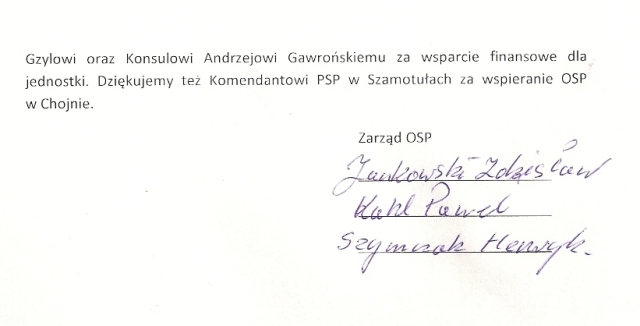 Gzylowi oraz Konsulowi Andrzejowi Gawrońskiemu za wsparcie finansowe dla
jednostki. Dziękujemy też Komendantowi PSP w Szamotułach za wspieranie OSP
w Chojnie.
Zarząd OSP
Jankowski Zdzisław
Kahl Paweł
Szymczak Henryk.